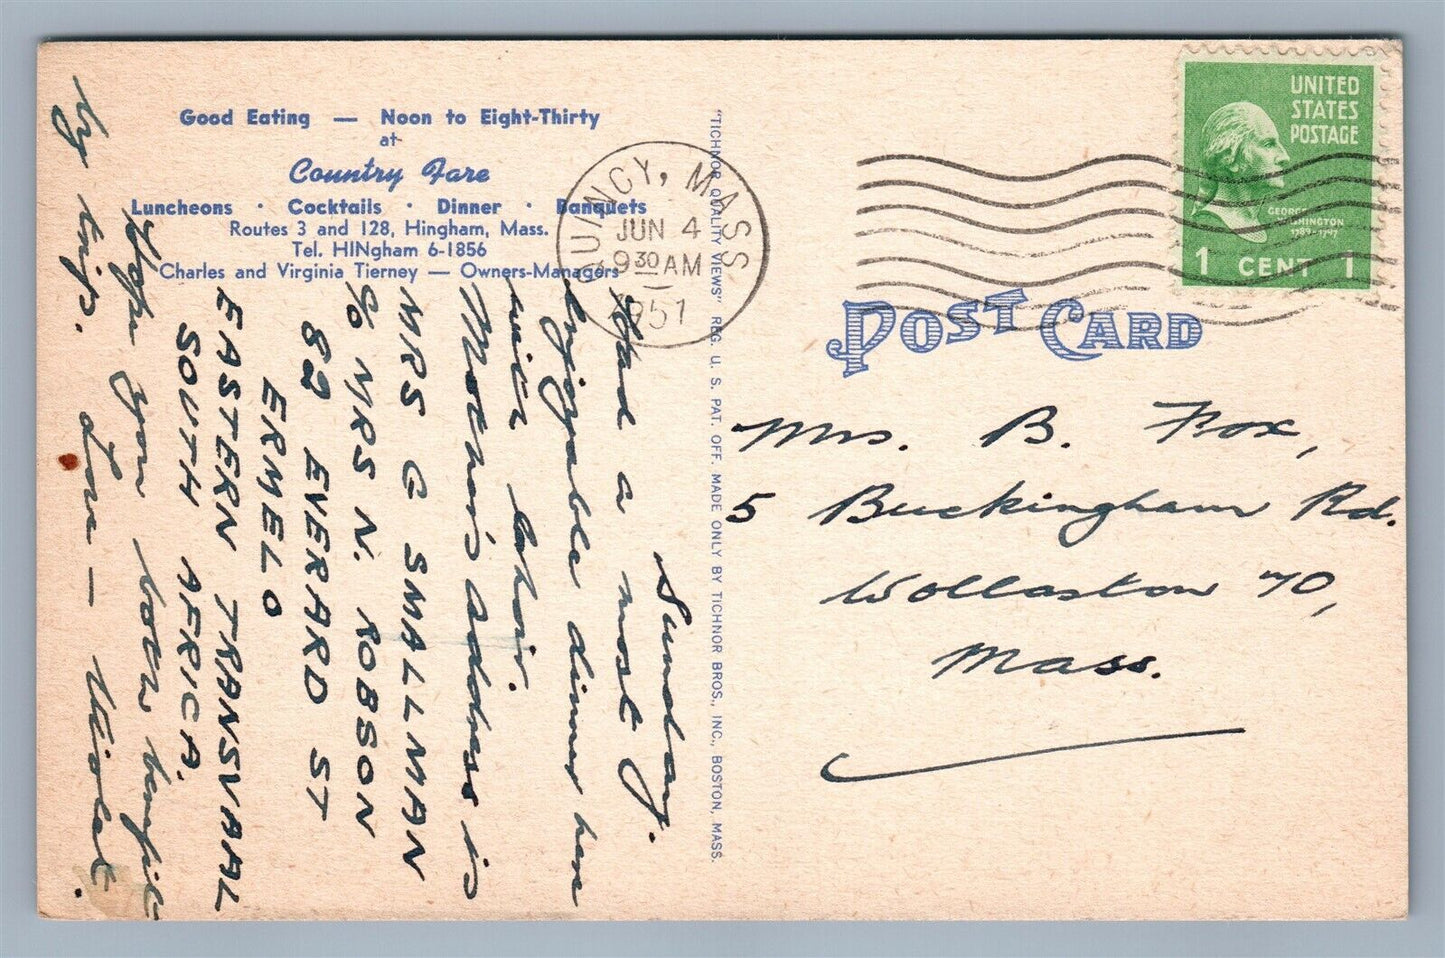 Good Eating — Noon to Eight-Thirty
at
Country Fare
Luncheons · Cocktails · Dinner · Banquets
Routes 3 and 128, Hingham, Mass.
Tel. HINgham 6-1856
Charles and Virginia Tierney — Owners-Managers
Sunday.
Had a most
enjoyable dinner here
with
Mother's address is
MRS G SMALLMAN
% MRS N. ROBSON
82 EVERARD ST
ERMELO
EASTERN TRANSVAAL
SOUTH AFRICA.
Hope you both benefit
by trip. Love — Violet.
"TICHNOR QUALITY VIEWS" REG. U. S. PAT. OFF. MADE ONLY BY TICHNOR BROS., INC., BOSTON, MASS.
QUINCY, MASS
JUN 4
9 30 AM
1951
UNITED
STATES
POSTAGE
GEORGE
WASHINGTON
1789-1797
1 CENT 1
POST CARD
Mrs. B. Fox,
5 Buckingham Rd.
Wollaston 70,
Mass.